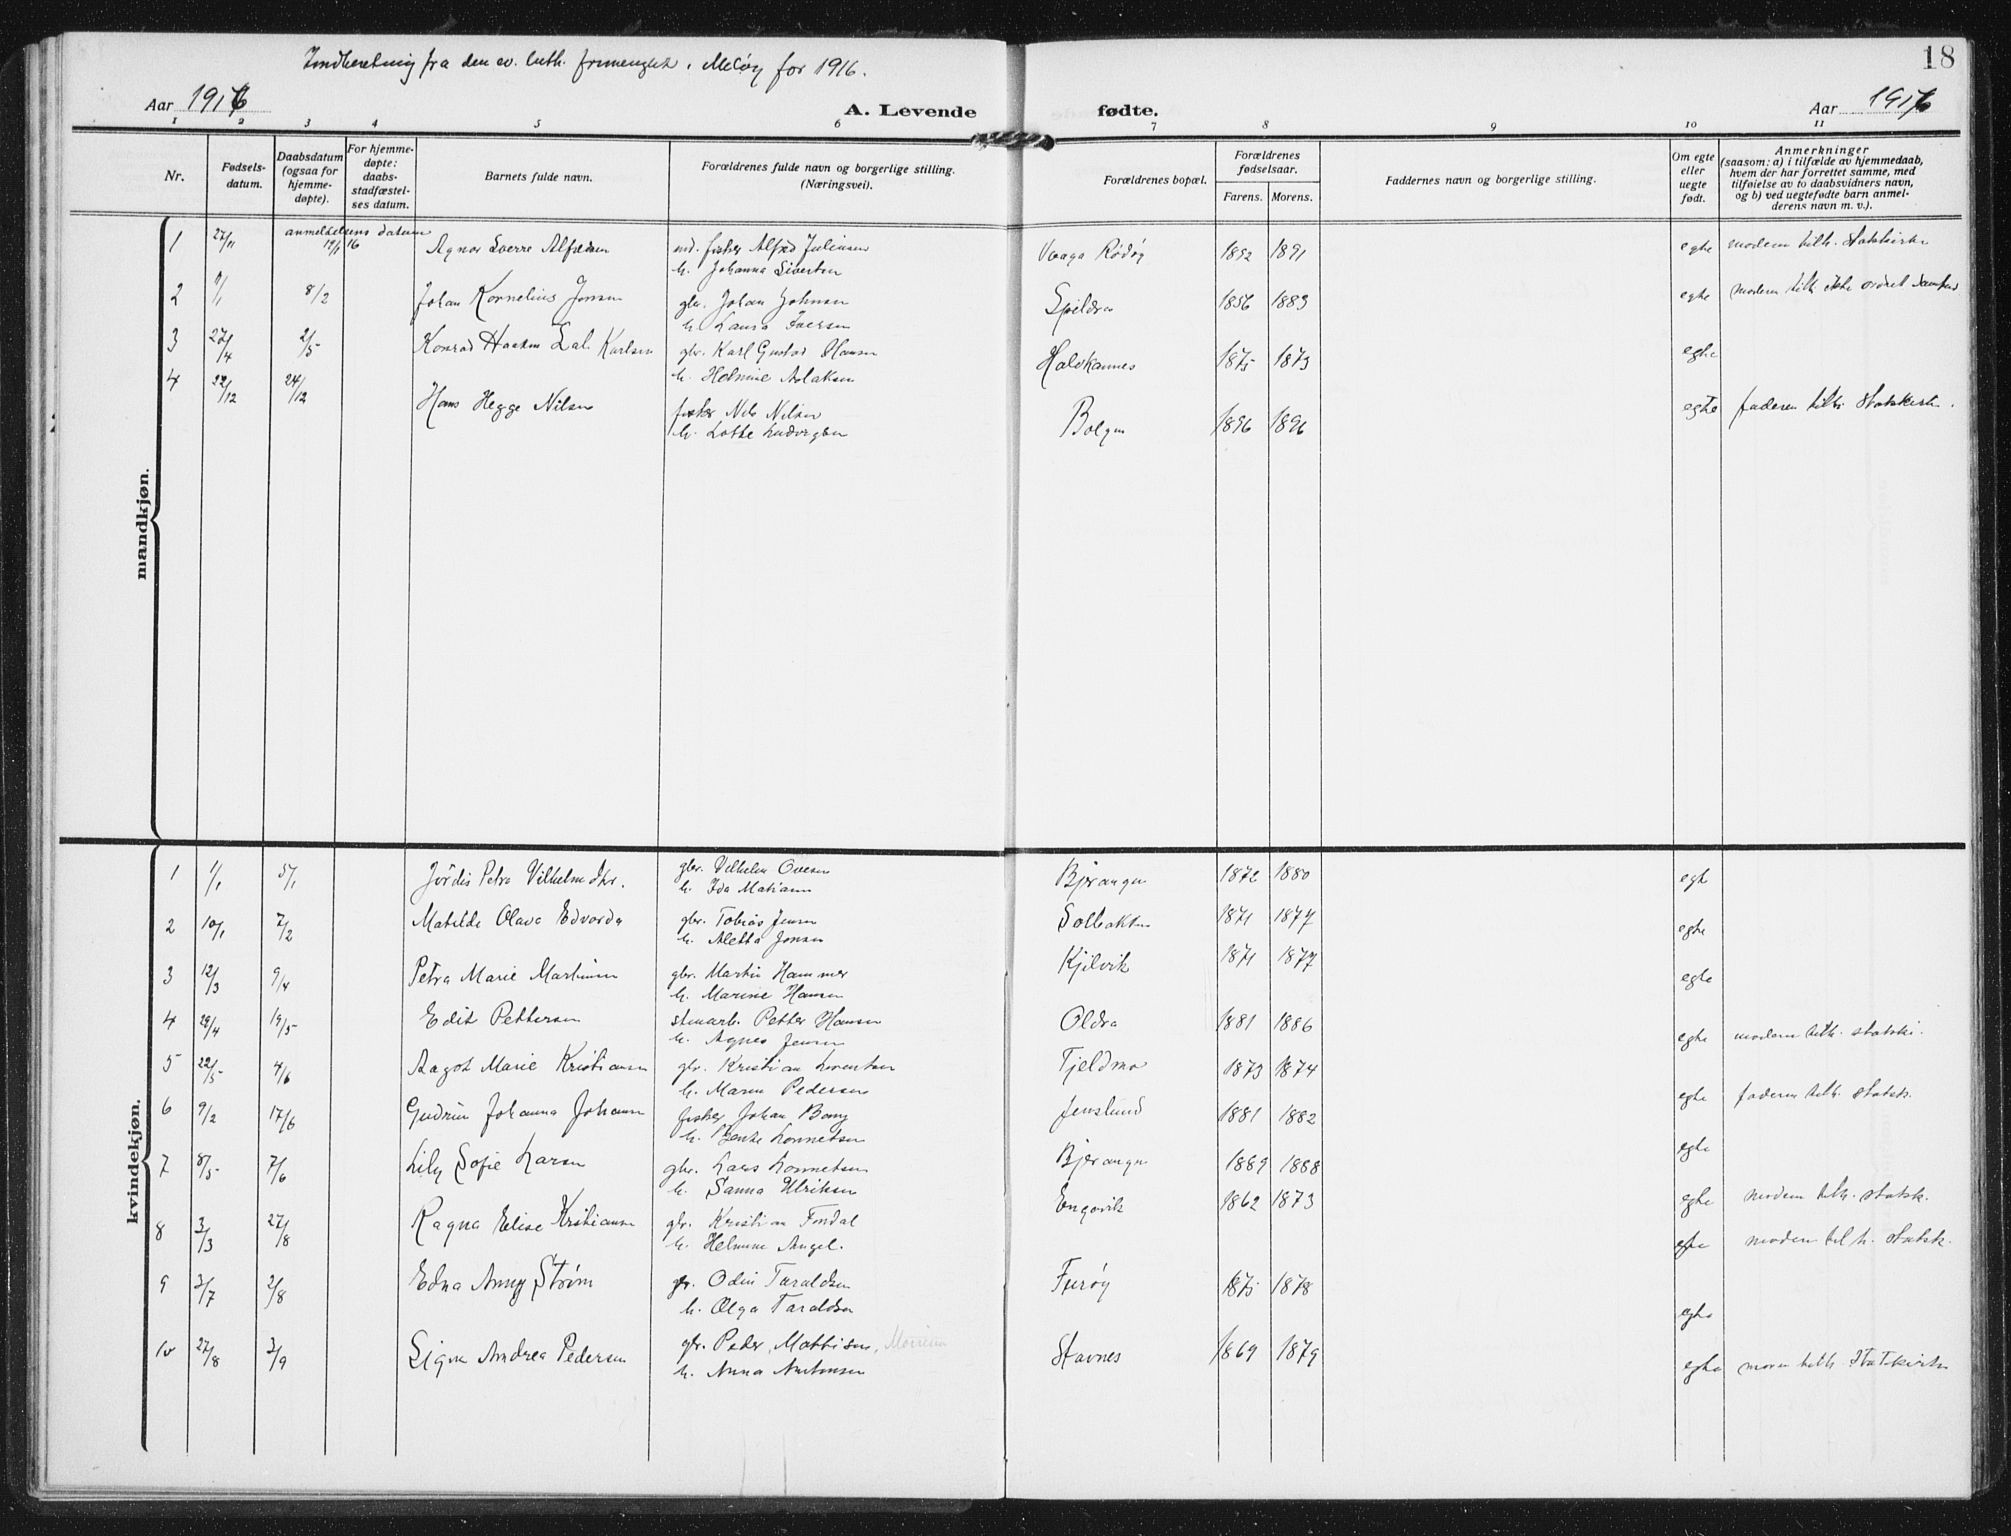 Indberetning fra den ev. luth. frimenighet i Meløy for 1916.
18
Aar 1916
A. Levende fødte.
Aar 1916
1 2 3 4 5 6 7 8 9 10 11
Nr.
Fødsels-
datum.
Daabsdatum
(ogsaa for
hjemme-
døpte).
For hjemme-
døpte:
daabs-
stadfæstel-
ses datum.
Barnets fulde navn.
Forældrenes fulde navn og borgerlige stilling.
(Næringsvei).
Forældrenes bopæl.
Forældrenes
fødselsaar.
Farens. Morens.
Faddernes navn og borgerlige stilling.
Om egte
eller
uegte
født.
Anmerkninger
(saasom: a) i tilfælde av hjemmedaab,
hvem der har forrettet samme, med
tilføielse av to daabsvidners navn,
og b) ved uegtefødte barn anmel-
derens navn m. v.).
mandkjøn.
anmeldelsens datum
1 27/11 19/1 16 Agnar Sverre Alfredsen ind. fisker Alfred Juliussen Vaaga Rødøy 1892 1891 egte moderen tilh. Statskirke
h. Johanna Sivertsen
2 1/1 8/2 Johan Kornelius Jonsen gbr. Johan Johnsen Spildra 1856 1883 egte moderen tilh. ikke
h. Laura Iversen
3 27/4 2/5 Konrad Haakon Karlsen gbr. Karl Gustav Hansen Halvkannes 1875 1873 egte
h. Helmine Aslaksen
4 22/12 24/12 Hans Hegge Nilsen fisker Nils Nilsen Bolgen 1896 1896 egte faderen tilh. Statskirk.
h. Lotte Ludvigsen
kvindekjøn.
1 1/1 5/1 Jørdis Petra Vilhelmsdtr. gbr. Vilhelm Ovesen Bjerangen 1872 1880 egt
h. Ida Matiasen
2 10/1 7/2 Matilde Olava Edvarda gbr. Tobias Jensen Solbakken 1871 1877 egte
h. Aletta Jonsen
3 12/3 9/4 Petra Marie Martinsen gbr. Martin Hammer Kjelvik 1871 1877 egte
h. Marine Hansen
4 29/4 19/5 Edit Pettersen stenarb. Petter Hansen Oldra 1881 1886 egte moderen tilh. statski.
h. Agnes Jensen
5 22/5 4/6 Aagot Marie Kristiansen gbr. Kristian Lorentsen Tjeldmo 1873 1874 egte faderen tilh. Statsk.
h. Maren Pedersen
6 9/2 17/6 Gudrun Johanna Johansen fisker Johan Bang Jenslund 1881 1882 egte
h. Bente Lornetsen
7 8/5 7/6 Lily Sofie Larsen gbr. Lars Lornetsen Bjerangen 1889 1888 egte moderen tilh. statsk.
h. Sanna Ulriksen
8 3/3 27/8 Ragna Elise Kristiansen gbr. Kristian Fondal Engavik 1862 1873 egte moderen tilh. statsk.
h. Helmine Angel.
9 3/7 2/8 Edna Anny Strøm gbr. Odin Taraldsen Furøy 1875 1878 egte
h. Olga Taraldsen
10 27/8 3/9 Signe Andrea Pedersen gbr. Peder Mattisen, Stavnes 1869 1879 egte moren tilh. Statskirke
h. Anna Antonsen